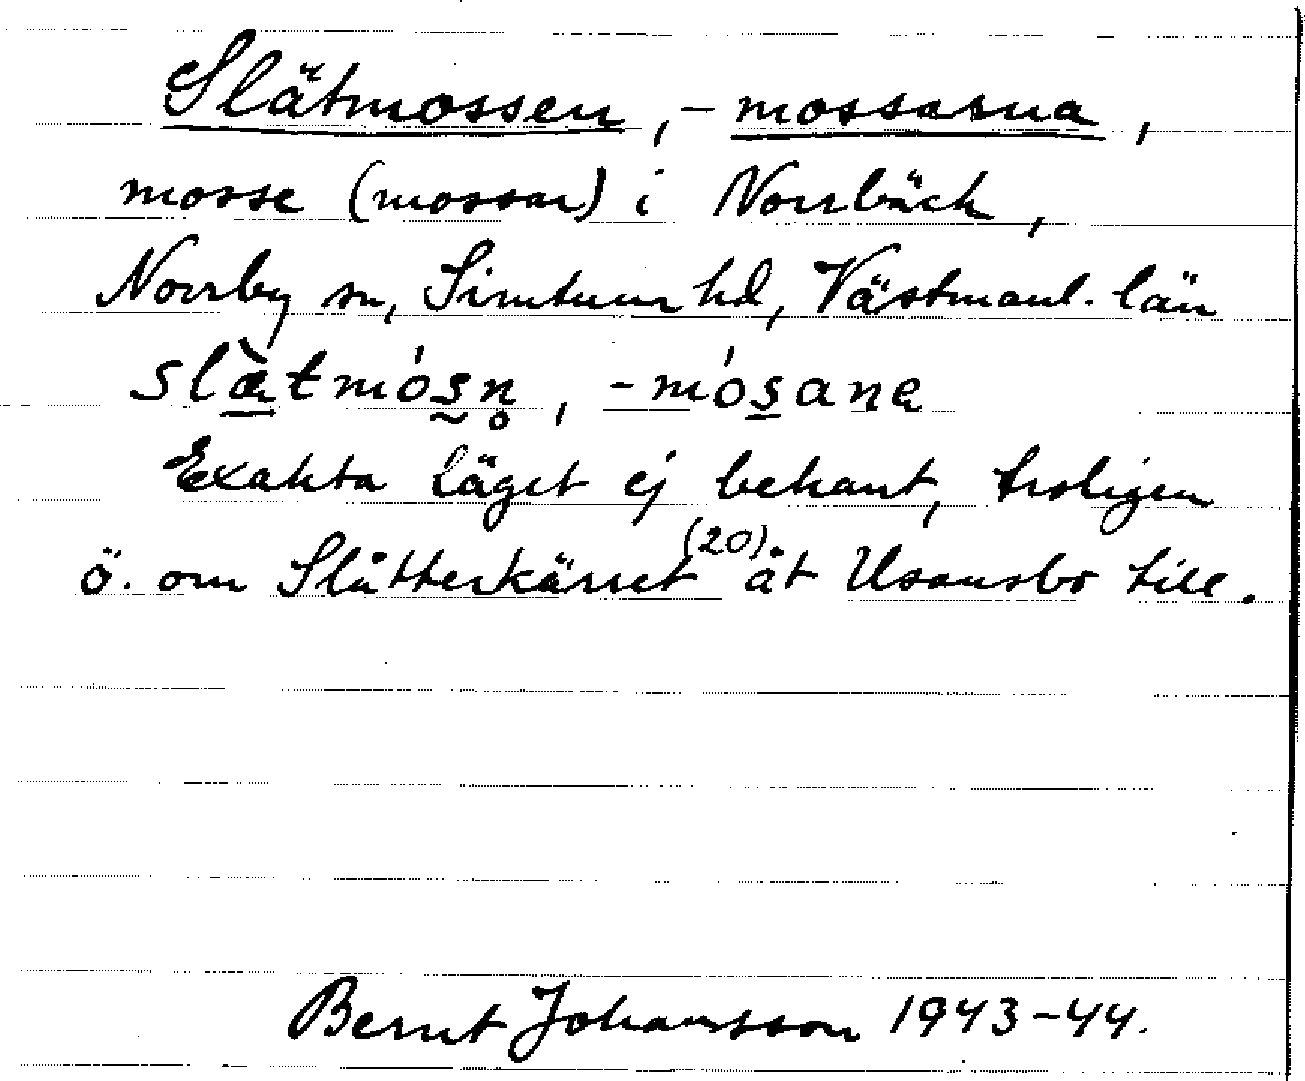 Slätmossen, -mossarna,
mosse (mossar) i Norrbäck,
Norrby sn, Simtuna hd, Västmanl. län
slæ̀tmósn̥, -mósana
Exakta läget ej bekant, troligen
ö. om Slåtterkärret (20) åt Usansbo till.
Bernt Johansson 1943-44.